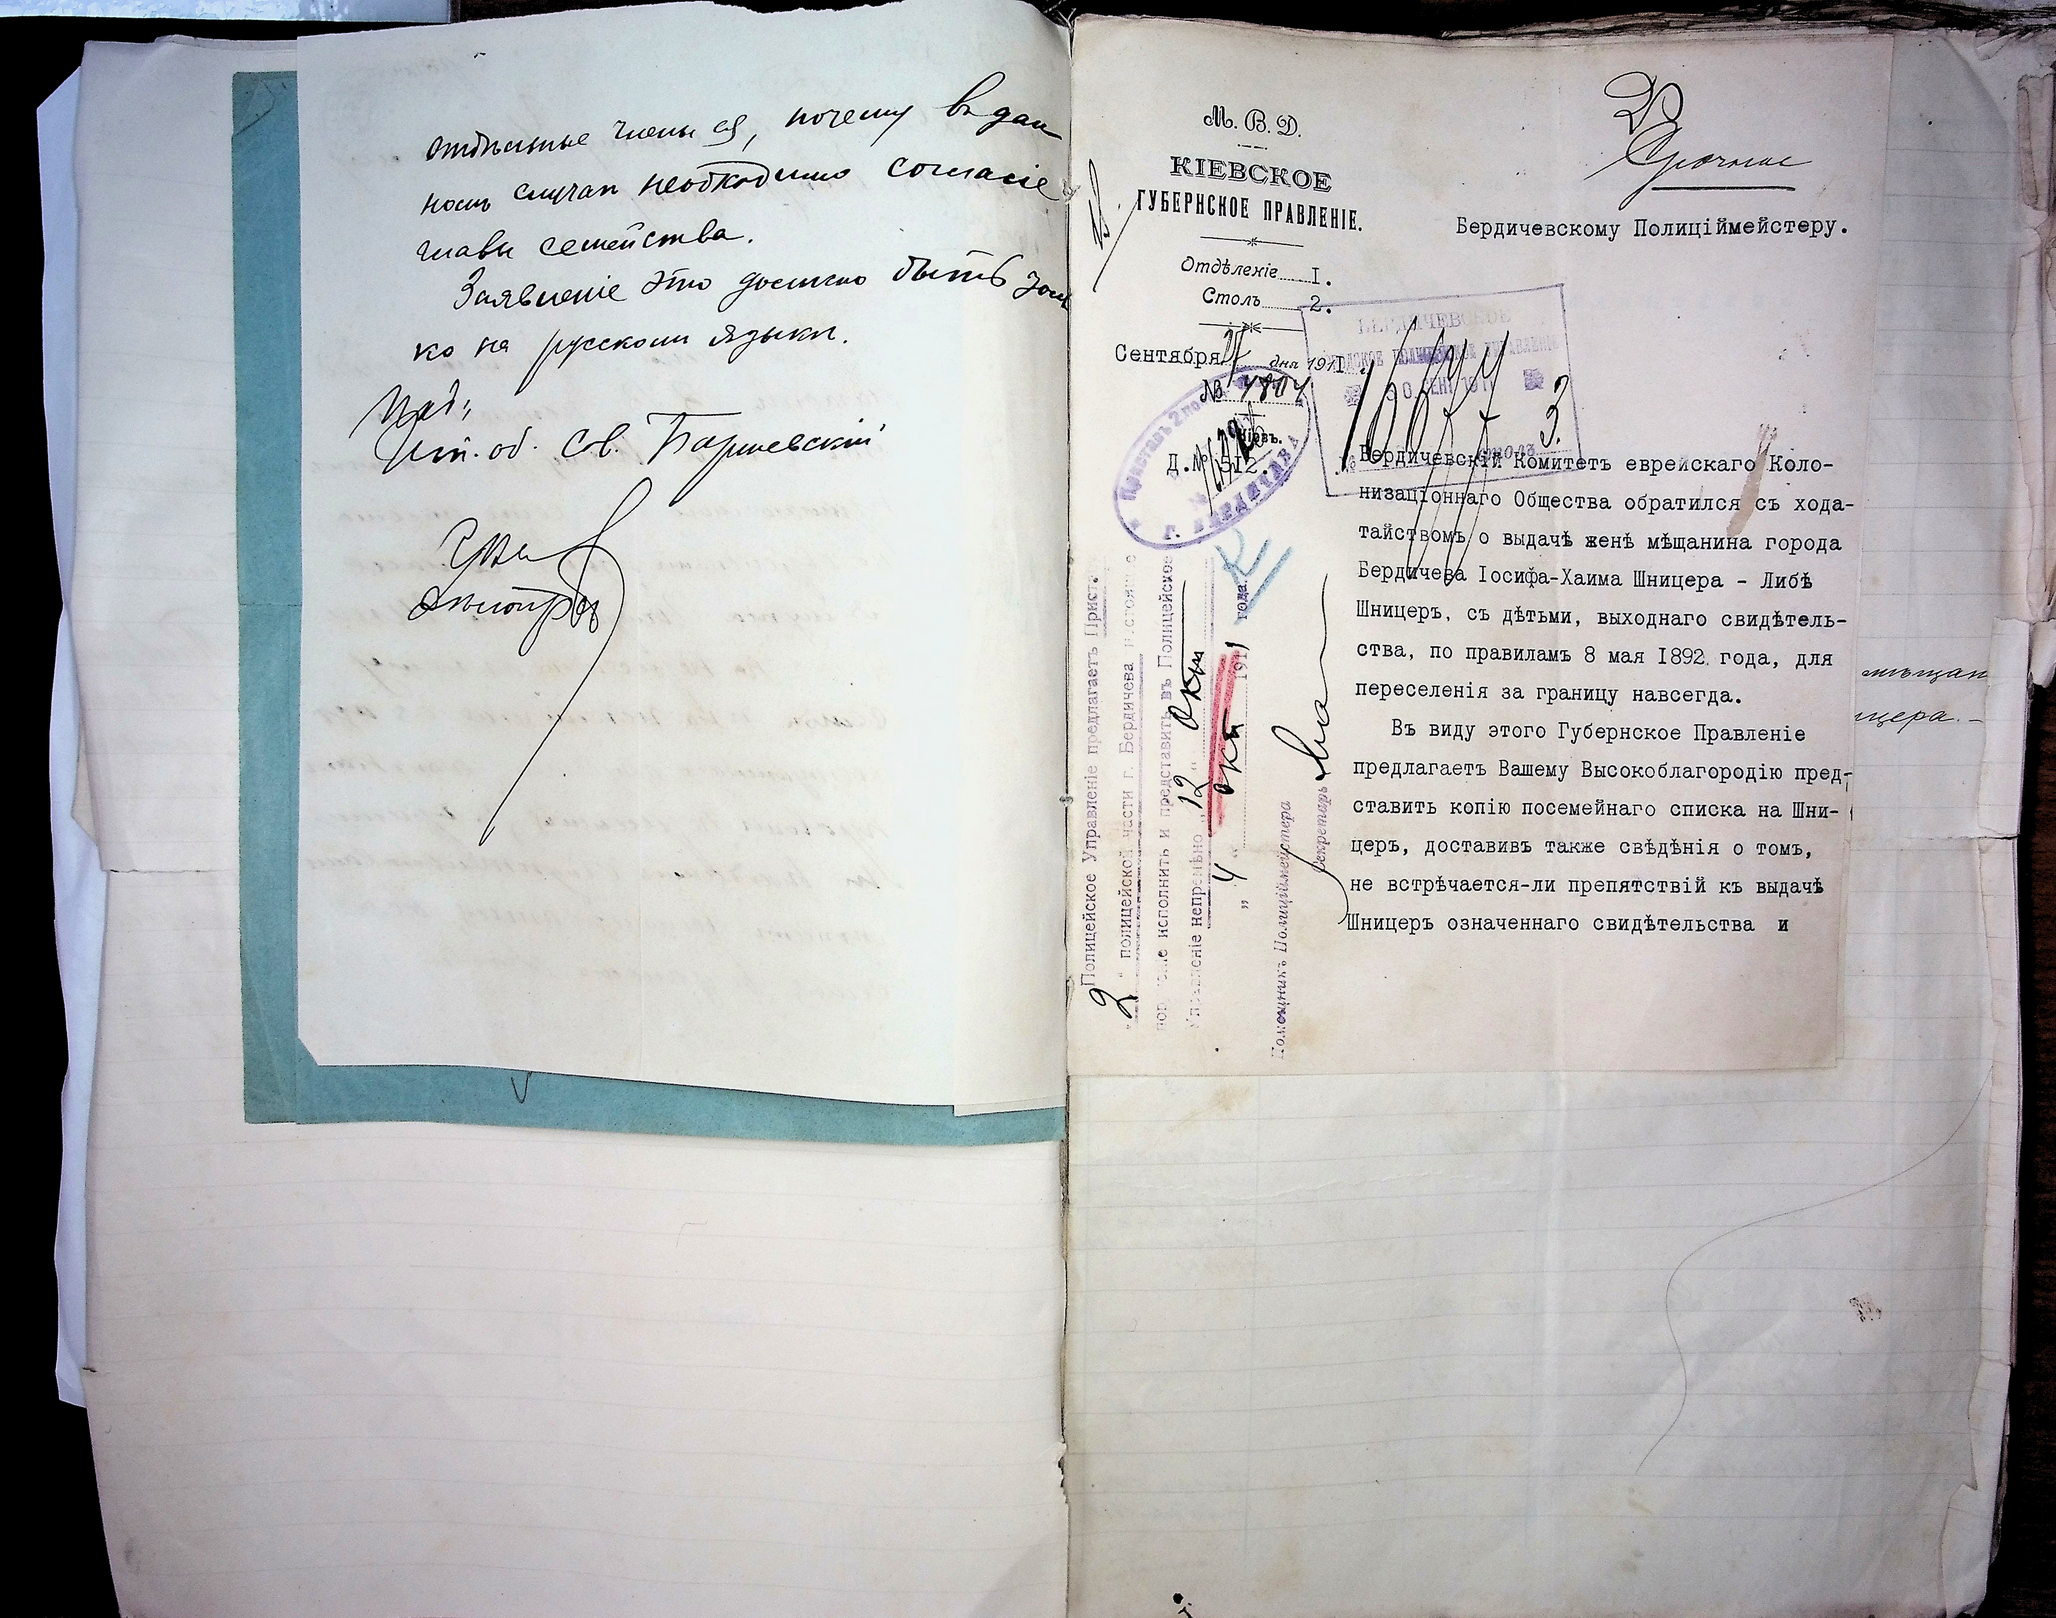 отдѣльные члены ея, почему въ дан
номъ случаѣ необходимо согласіе
главы семейства.
Заявленіе это должно быть толь
ко на русскомъ языкѣ.
Под.
Исп. об. Сов.
М. В. Д.
КІЕВСКОЕ
ГУБЕРНСКОЕ ПРАВЛЕНІЕ.
Отдѣленіе I.
Столъ 2.
Сентября дня 1911 г.
№ 4804
Кіевъ.
Д. № 512.
Срочное
Бердичевскому Полиціймейстеру.
БЕРДИЧЕВСКОЕ
ГОРОДСКОЕ ПОЛИЦЕЙСКОЕ УПРАВЛЕНІЕ
30 СЕН. 1911
Приставъ 2 по
Г. БЕРДИЧЕВА
Бердичевскій Комитетъ еврейскаго Коло-
низаціоннаго Общества обратился съ хода-
тайствомъ о выдачѣ женѣ мѣщанина города
Бердичева Іосифа-Хаима Шницера - Либѣ
Шницеръ, съ дѣтьми, выходнаго свидѣтель-
ства, по правиламъ 8 мая 1892 года, для
переселенія за границу навсегда.
Въ виду этого Губернское Правленіе
предлагаетъ Вашему Высокоблагородію пред-
ставить копію посемейнаго списка на Шни-
церъ, доставивъ также свѣдѣнія о томъ,
не встрѣчается-ли препятствій къ выдачѣ
Шницеръ означеннаго свидѣтельства и
Полицейское Управленіе предлагаетъ Прист.
„ 2 " полицейской части г. Бердичева настоящее
порученіе исполнить и представить въ Полицейское
Управленіе непремѣнно „ 12 " Окт
„ 4 " окт 1911 года.
Помощникъ Полиціймейстера
Секретарь
мѣщан
цера. -